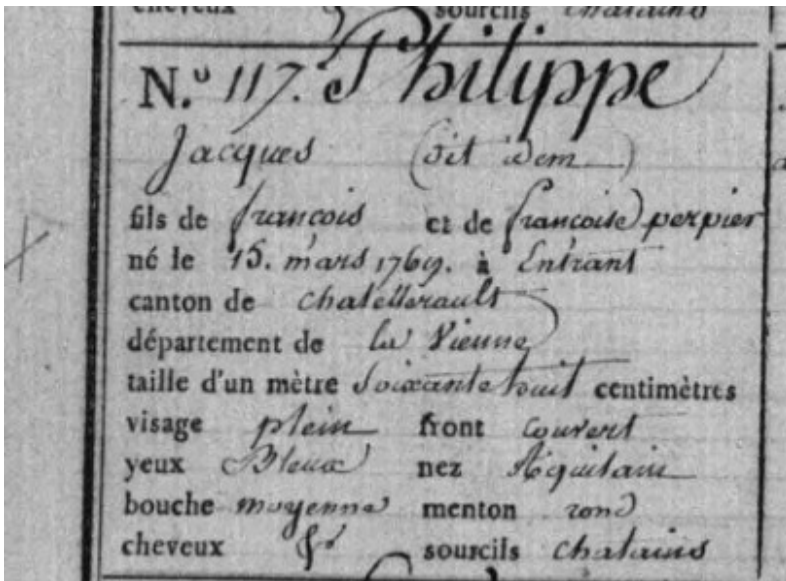 cheveux & sourcils chatains
N.º 117. Philippe
Jacques (dit idem)
fils de françois et de françoise perpier
né le 15. mars 1769. à Entrant
canton de chatellerault
département de la Vienne
taille d'un mètre soixante huit centimètres
visage plein front couvert
yeux Bleux nez Aquilain
bouche moyenne menton rond
cheveux & sourcils chatains